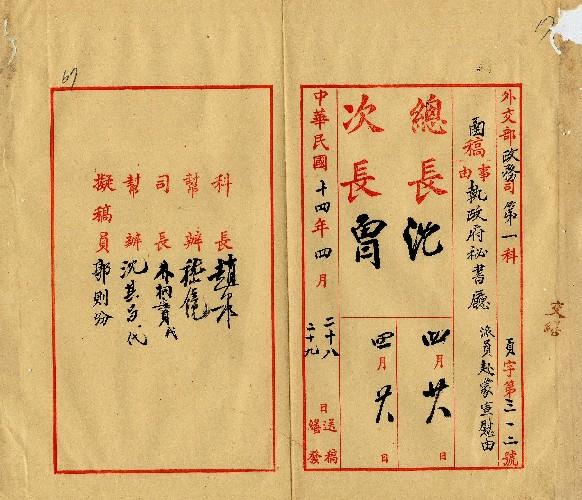 外交部政務司第一科 頁字第三一二號
函稿
事由 執政府秘書廳 派員赴蒙宣慰由
總長 沈 四月廿八日
次長 曾 四月廿八日
中華民國十四年四月 二十八日送稿
二十九日繕發
科長 趙泉
幫辦
司長 朱 代
幫辦 沈其 代
擬稿員 郭則汾
67